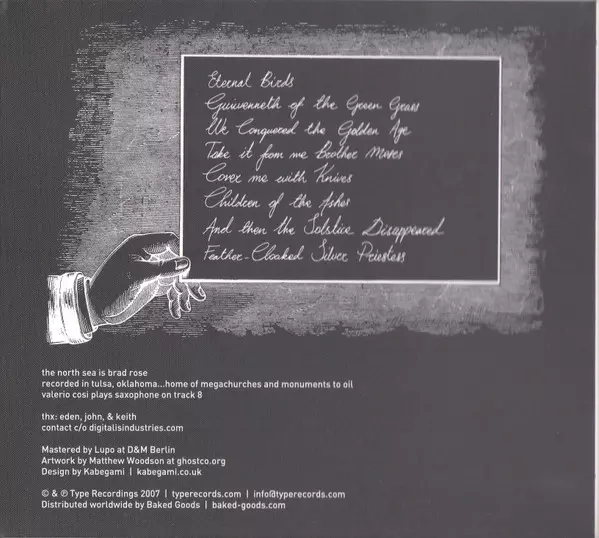 Eternal Birds
Guiwenneth of the Green Grass
We Conquered the Golden Age
Take it from me Brother Moses
Cover me with Knives
Children of the Ashes
And then the Solstice Disappeared
Feather-Cloaked Silver Priestess
the north sea is brad rose
recorded in tulsa, oklahoma...home of megachurches and monuments to oil
valerio cosi plays saxophone on track 8
thx: eden, john, & keith
contact c/o digitalisindustries.com
Mastered by Lupo at D&M Berlin
Artwork by Matthew Woodson at ghostco.org
Design by Kabegami | kabegami.co.uk
© & ℗ Type Recordings 2007 | typerecords.com | info@typerecords.com
Distributed worldwide by Baked Goods | baked-goods.com